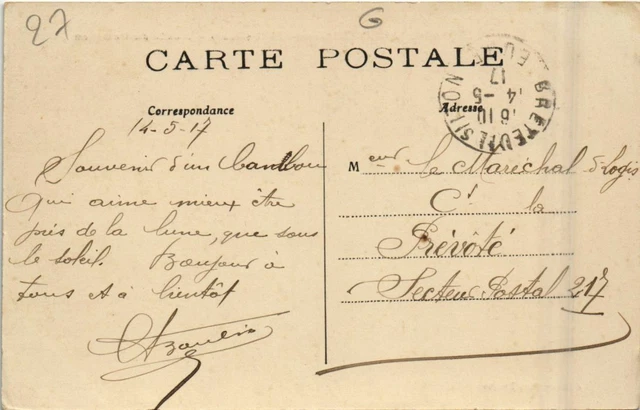 27
6
CARTE POSTALE
Correspondance
Adresse
BRETEUIL S ITON
16 10
14 - 5
17
EURE
14-5-17
Souvenir d'un
qui aime mieux être
près de la lune, que sous
le soleil. Bonjour à
tous et à bientôt
M eur le Maréchal d-logis
Ct la
Prévôté
Secteur Postal 217